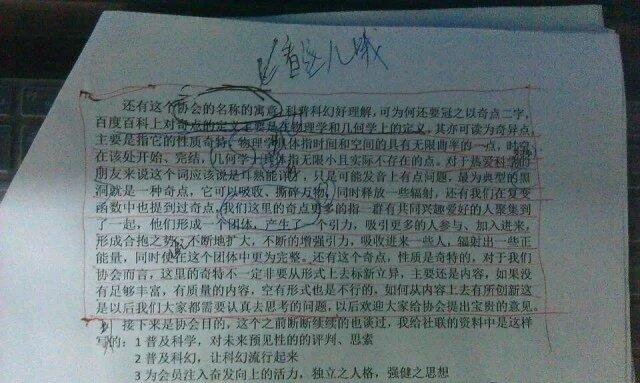 看这儿哦
还有这个协会的名称的寓意,科普科幻好理解,可为何还要冠之以奇点二字,
百度百科上对奇点的定义主要是在物理学和几何学上的定义,其亦可读为奇异点,
主要是指它的性质奇特,物理学具体指时间和空间的具有无限曲率的一点,时空
在该处开始、完结,几何学上具体指无限小且实际不存在的点。对于热爱科学的
朋友来说这个词应该说是耳熟能详,只是可能发音上有点问题,最为典型的黑
洞就是一种奇点,它可以吸收、撕碎万物,同时释放一些辐射,还有我们在复变
函数中也提到过奇点,我们这里的奇点更多的指一群有共同兴趣爱好的人聚集到
了一起,他们形成一个团体,产生了一个引力,吸引更多的人参与、加入进来,
形成合抱之势,不断地扩大,不断的增强引力,吸收进来一些人,辐射出一些正
能量,同时使在这个团体中更为完整。还有这个奇点,性质是奇特的,对于我们
协会而言,这里的奇特不一定非要从形式上去标新立异,主要还是内容,如果没
有足够丰富,有质量的内容,空有形式也是不行的。如何从内容上去有所创新这
是以后我们大家都需要认真去思考的问题,以后欢迎大家给协会提出宝贵的意见。
接下来是协会目的,这个之前断断续续的也谈过,我给社联的资料中是这样
写的:1 普及科学,对未来预见性的的评判、思索
2 普及科幻,让科幻流行起来
3 为会员注入奋发向上的活力,独立之人格,强健之思想